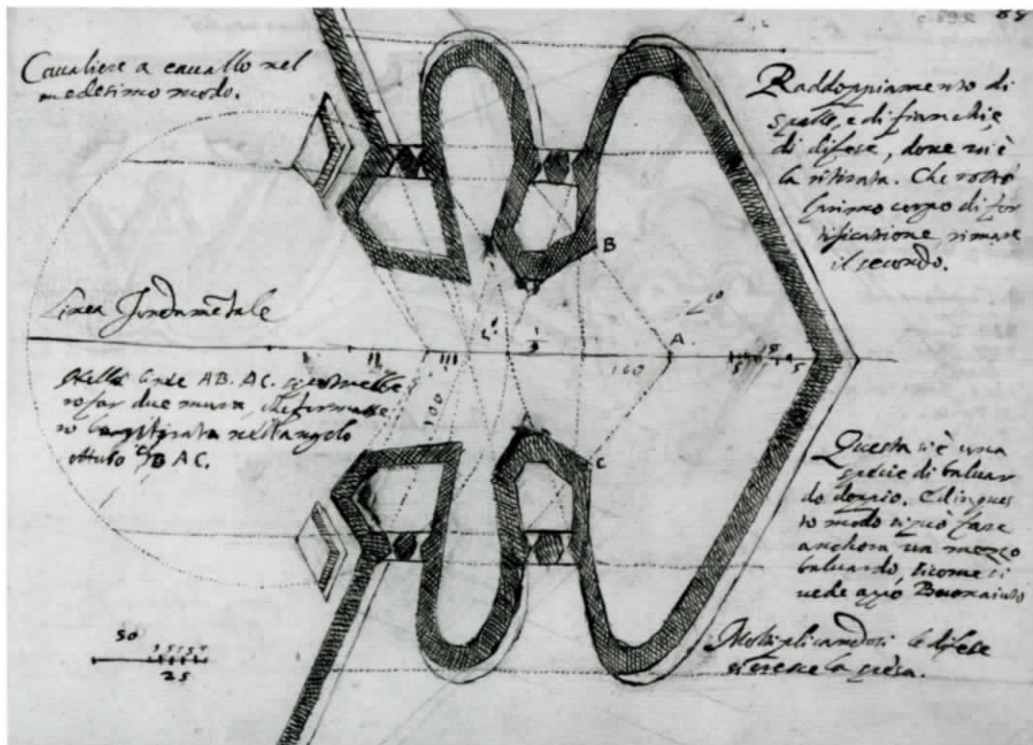 88
Cavaliere a cavallo nel
medesimo modo.
Raddoppiamento di
spalle, e di fianchi, e
di difese, dove vi è
la ritirata. Che rotto
il primo corpo di for
tificatione, rimane
il secondo.
B
Linea Fundametale
A
160
100
Nelle linee AB. AC. si
far due mura, che
la ritirata nell'angolo
ottuso BAC.
C
Questa si è una
spetie di baluar
do doppio. E di ques
to modo si può fare
anchora un mezzo
baluardo, sicome si
vede
Moltiplicandosi le difese
si cresce la spesa.
50
25